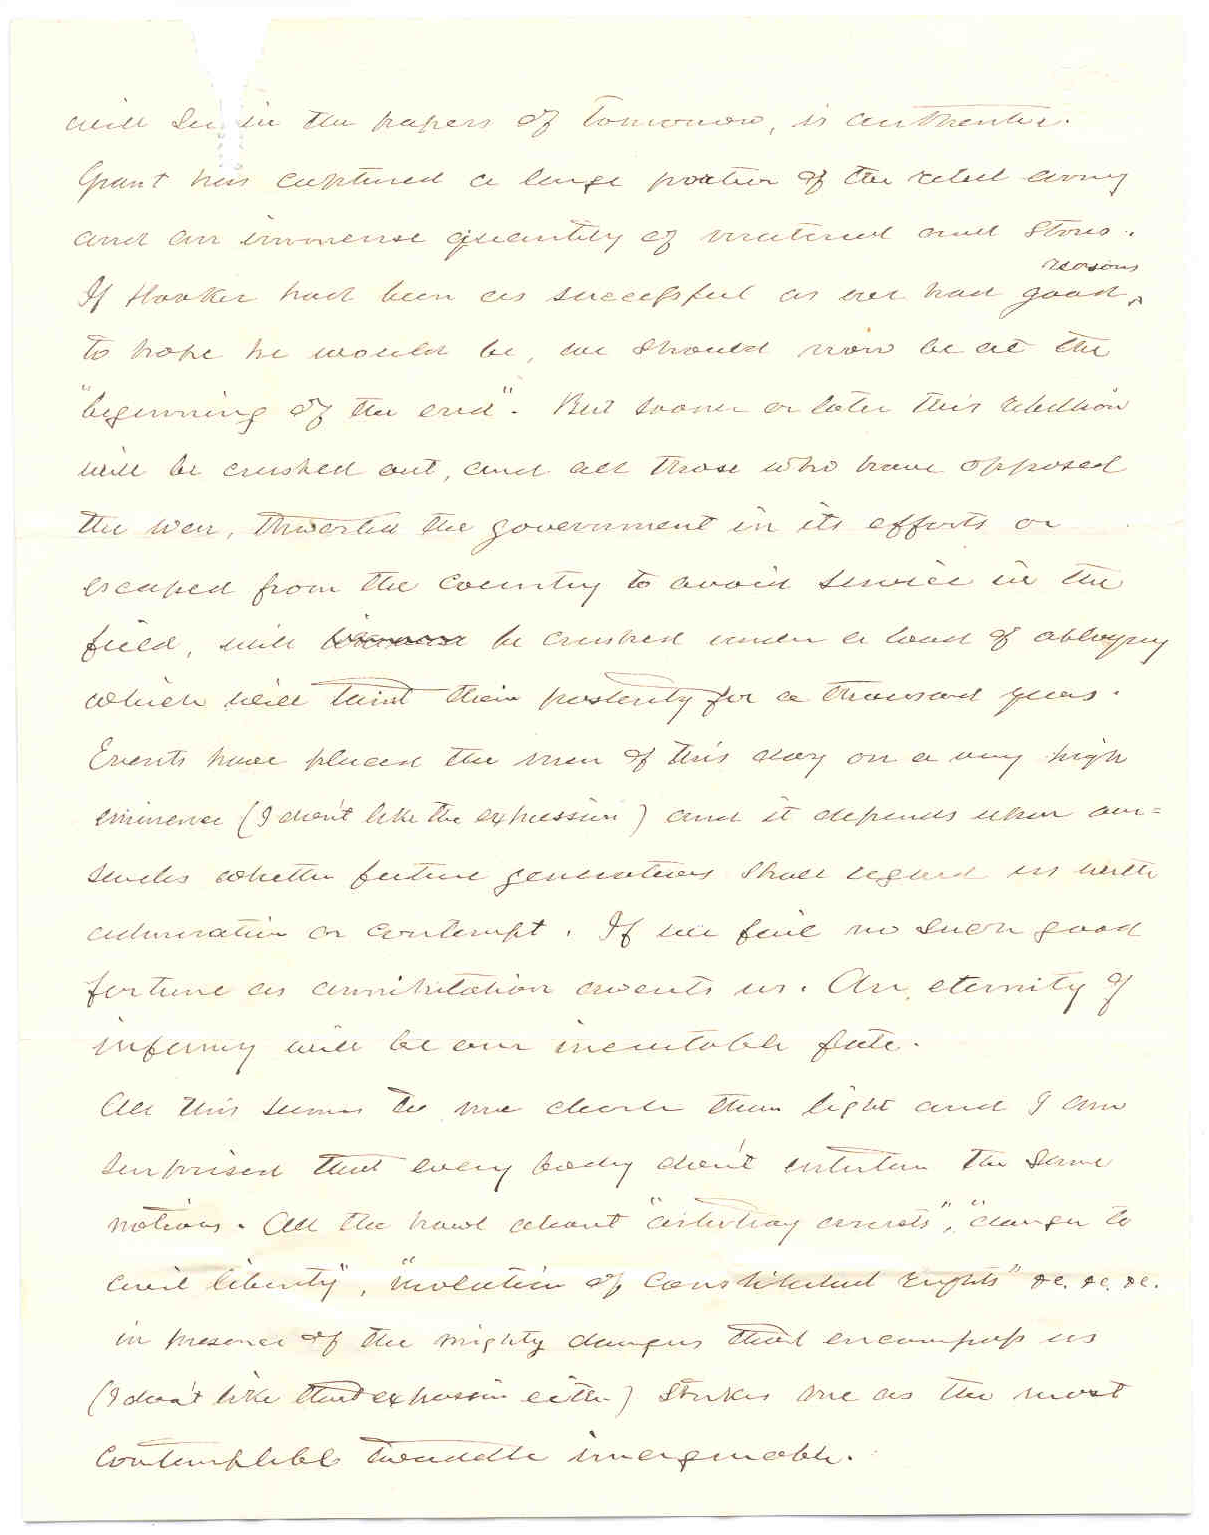 will see in the papers of tomorrow, is authentic.
Grant has captured a large portion of the rebel army
and an immense quantity of material and stores.
If Hooker had been as successful as we had good reasons
to hope he would be, we should now be at the
"beginning of the end". But sooner or later this rebellion
will be crushed out, and all those who have opposed
the war, thwarted the government in its efforts or
escaped from the country to avoid service in the
field, will be crushed under a load of obloquy
which will taint their posterity for a thousand years.
Events have placed the men of this day on a very high
eminence (I don't like the expression) and it depends upon our=
selves whether future generations shall regard us with
admiration or contempt. If we fail no such good
fortune as annihilation awaits us. An eternity of
infamy will be our inevitable fate.
All this seems to me clearer than light and I am
surprised that every body don't entertain the same
notions. All the howl about "arbitrary arrests", "danger to
civil liberty", "violation of constitutional rights" &c. &c. &c.
in presence of the mighty dangers that encompass us
(I don't like that expression either) strikes me as the most
contemptible twaddle imaginable.